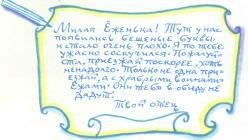 Милая Ёженька! Тут у нас
появились бешеные буквы
и стало очень плохо. Я по тебе
ужасно соскучился. Пожалуй-
ста, приезжай поскорее, хоть
ненадолго. Только не одна при-
езжай, а с храбрыми воинами
Ежами. Они тебя в обиду не
дадут!
Твой отец